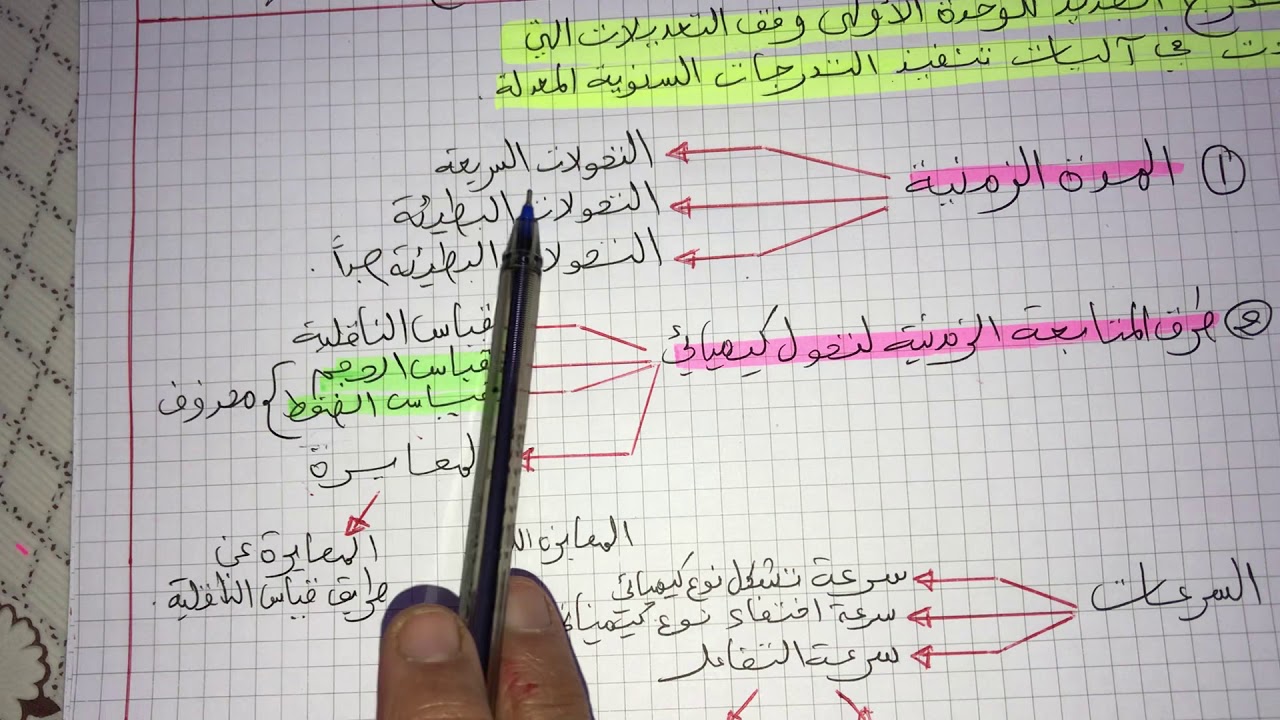 للوحدة الأولى وفق التعديلات التي
في آليات تنفيذ التدرجات السنوية المعدلة .
① المدة الزمنية
التحولات السريعة
التحولات البطيئة
التحولات البطيئة جداً .
② طرق المتابعة الزمنية لتحول كيميائي
قياس الناقلية
قياس الحجم
قياس الضغط
محذوف
المعايرة
المعايرة عن
طريق قياس الناقلية .
المعايرة
السرعات
سرعة تشكل نوع كيميائي
سرعة اختفاء نوع كيميائي
سرعة التفاعل